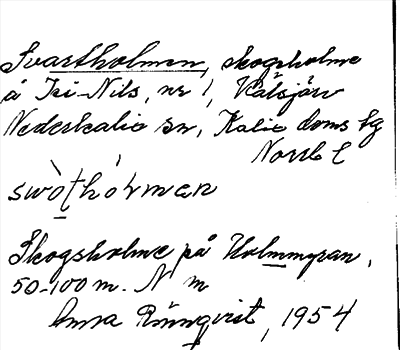 Svartholmen, skogsholme
å Isi-Nils, nr 1, Våtsjärv
Nederkalix sn, Kalix doms hg
Norrb l
swòthórman
Skogsholme på Holmmyran,
50-100 m. N m
Anna Rönnqvist, 1954